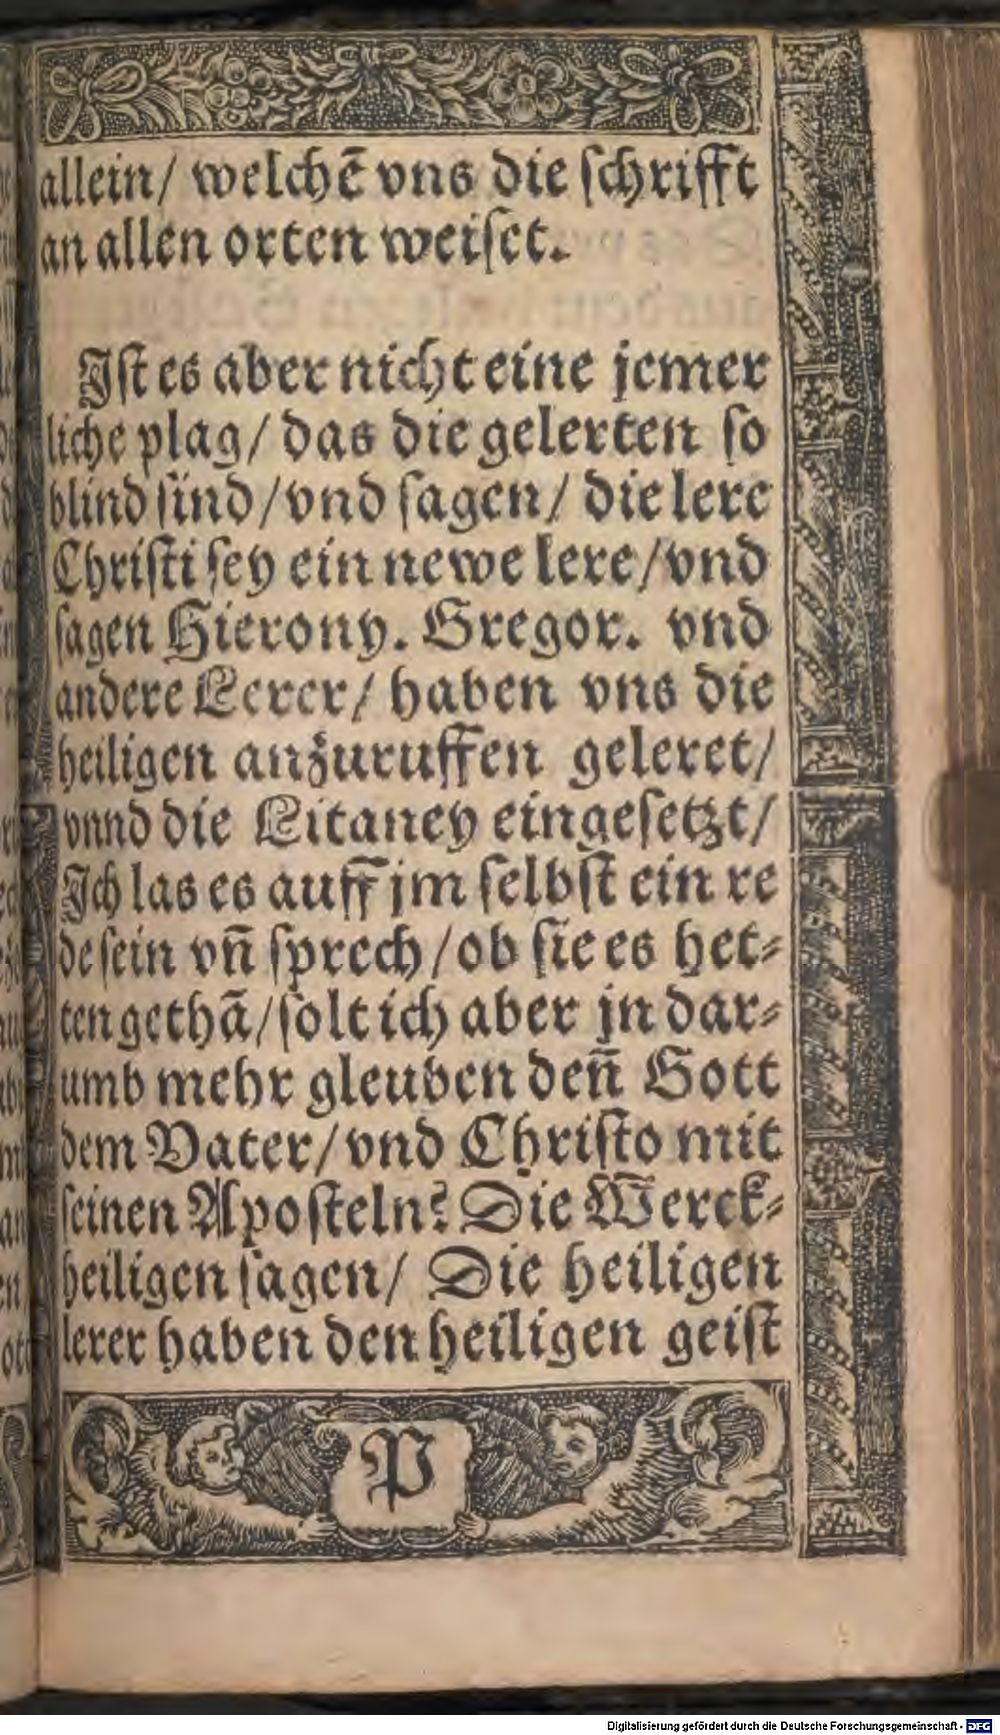 allein/ welchē vns die ſchrifft
an allen orten weiſet.
Iſt es aber nicht eine jemer
liche plag/ das die gelerten ſo
blind ſind/vnd ſagen/ die lere
Chriſti ſey ein newe lere/vnd
ſagen Hierony. Gregor. vnd
andere Lerer/ haben vns die
heiligen anzuruffen geleret/
vnnd die Litaney eingeſetzt/
Ich las es auff jm ſelbſt ein re
de ſein vn̄ ſprech/ob ſie es het⸗
ten gethā/ſolt ich aber jn dar⸗
umb mehr gleuben den̄ Gott
dem Vater/vnd Chriſto mit
ſeinen Apoſteln? Die Werck⸗
heiligen ſagen/ Die heiligen
lerer haben den heiligen geiſt
P
Digitalisierung gefördert durch die Deutsche Forschungsgemeinschaft - DFG